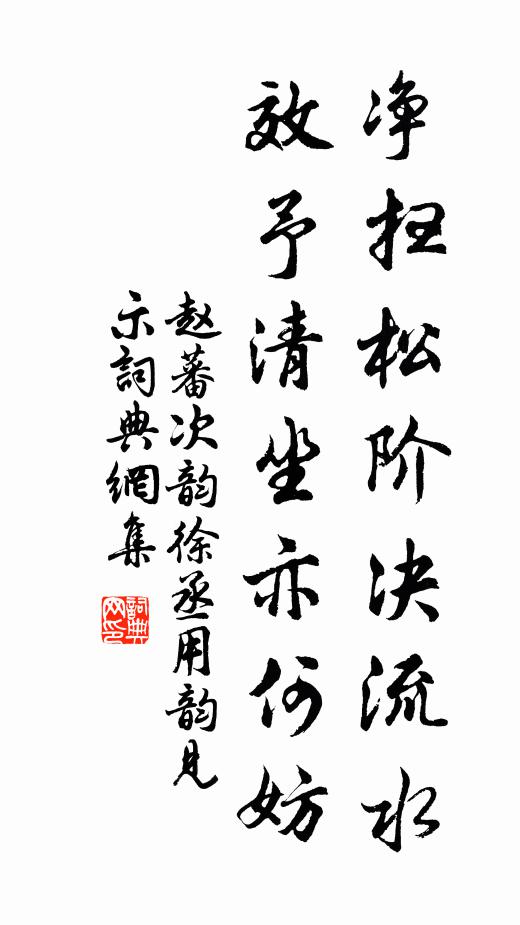 净扫松阶决流水
效予清坐亦何妨
赵蕃次韵徐丞用韵见
示詞典網集
詞典
网印